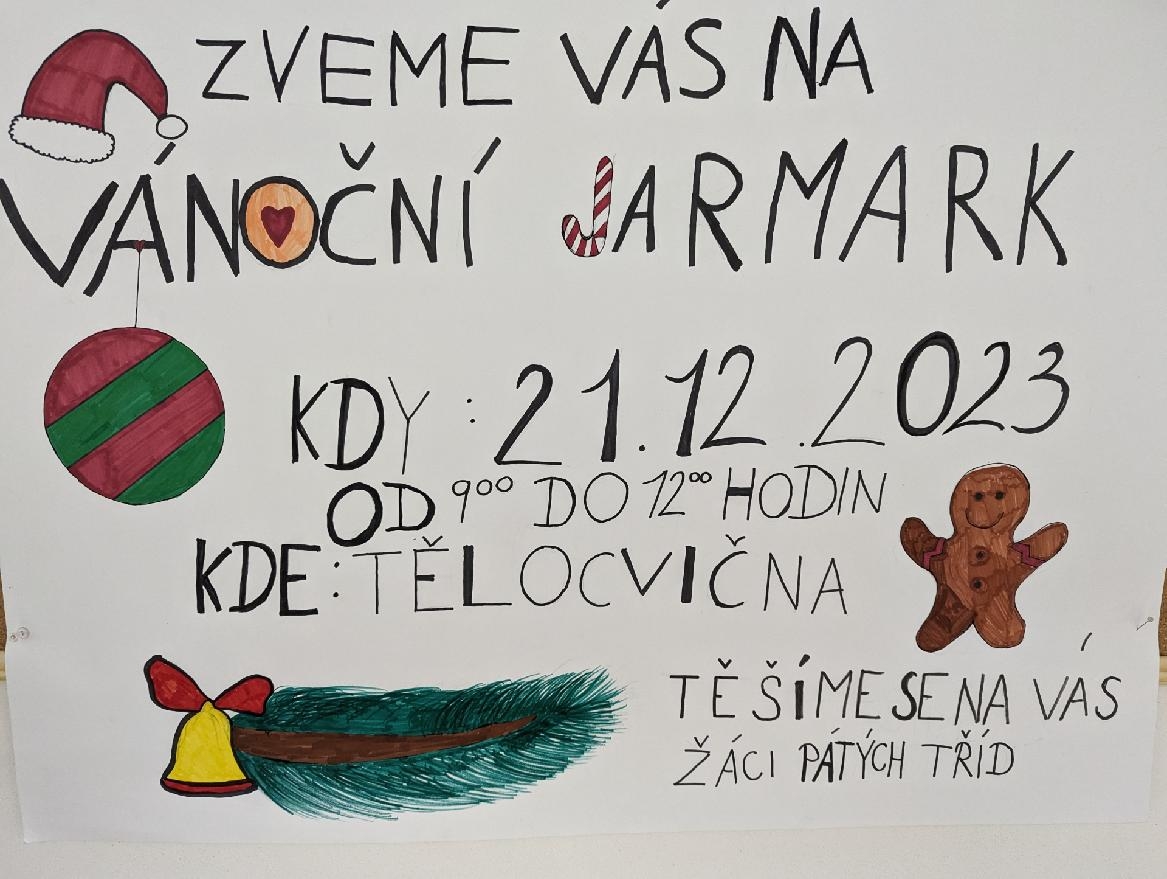 ZVEME VÁS NA
VÁNOČNÍ JARMARK
KDY : 21.12.2023
OD 9⁰⁰ DO 12⁰⁰ HODIN
KDE: TĚLOCVIČNA
TĚŠÍME SE NA VÁS
ŽÁCI PÁTÝCH TŘÍD